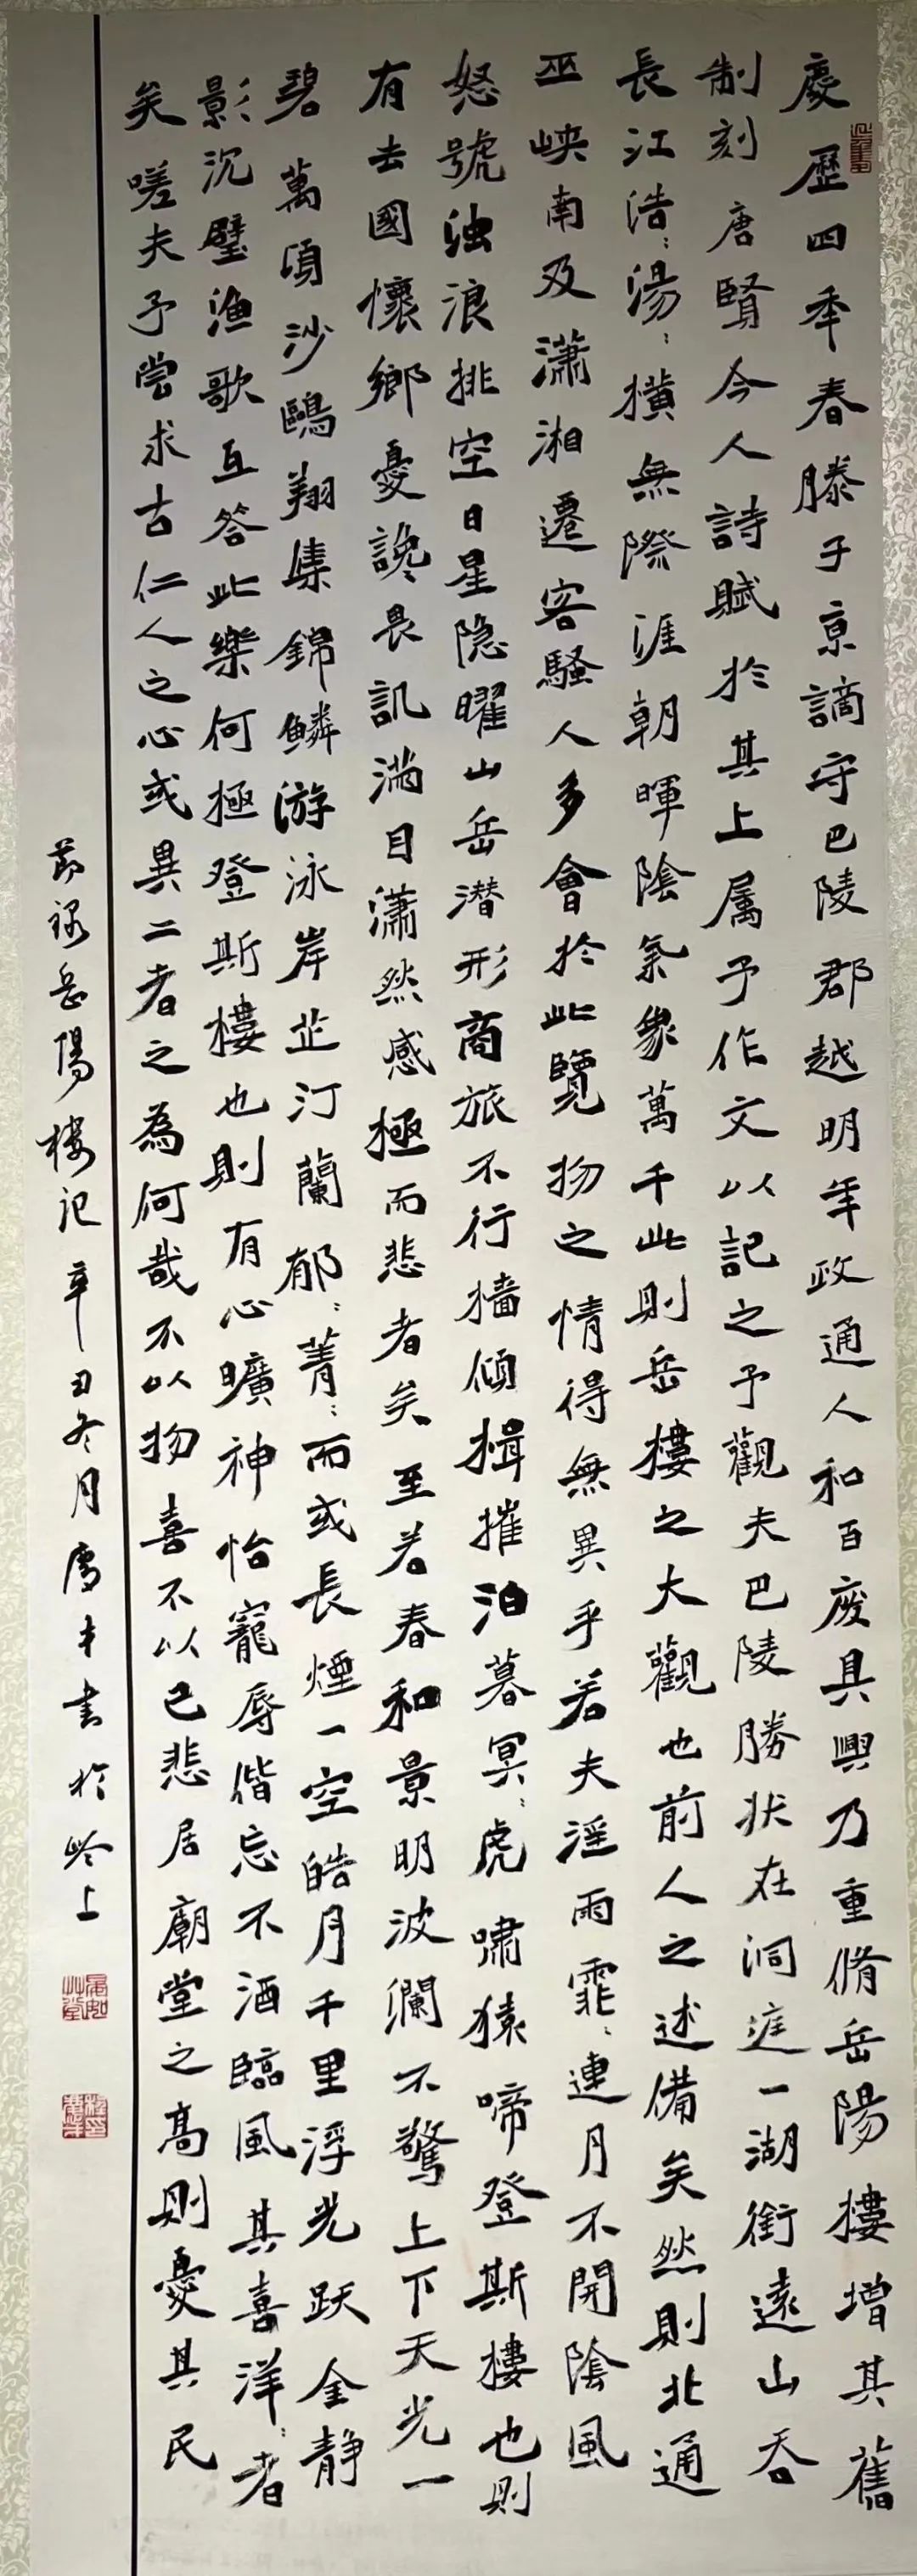 慶歷四年春滕子京謫守巴陵郡越明年政通人和百廢具興乃重脩岳陽樓增其舊
制刻唐賢今人詩賦於其上属予作文以記之予觀夫巴陵勝狀在洞庭一湖銜遠山吞
長江浩:湯:橫無際涯朝暉陰氣象萬千此則岳樓之大觀也前人之述備矣然則北通
巫峡南及瀟湘遷客騷人多會於此覽物之情得無異乎若夫淫雨霏:連月不開陰風
怒號浊浪排空日星隐曜山岳潜形商旅不行檣傾揖摧泊暮冥:虎嘯猿啼登斯樓也則
有去國懷鄉憂讒畏譏滿目瀟然感極而悲者矣至若春和景明波瀾不驚上下天光一
碧萬頃沙鷗翔集錦鱗游泳岸芷汀蘭郁:菁:而或長煙一空皓月千里浮光跃金静
影沉璧渔歌互答此樂何極登斯樓也則有心曠神怡寵辱偕忘不酒臨風其喜洋:者
矣嗟夫予尝求古仁人之心或異二者之為何哉不以物喜不以己悲居廟堂之高則憂其民
節録岳陽樓記辛丑冬月 書於 上